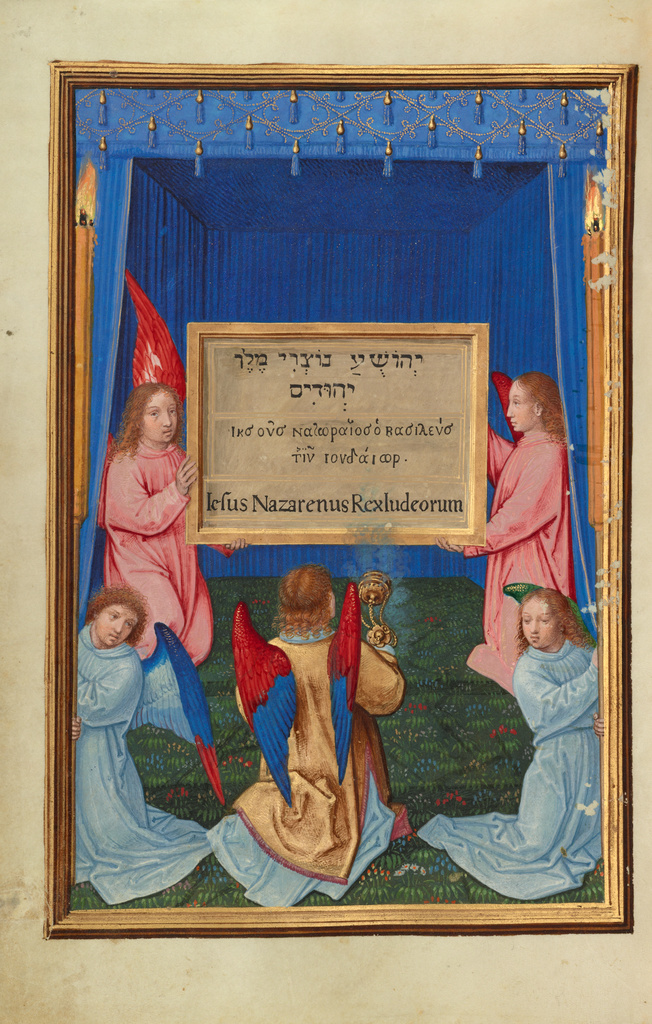 יְהוֹשֻׁעַ נוֹצְרִי מֶלֶךְ
יְהוּדִים
ναζωραῖοσ ὁ βασιλεύσ
ιουδάιωρ.
Iesus Nazarenus Rex Iudeorum